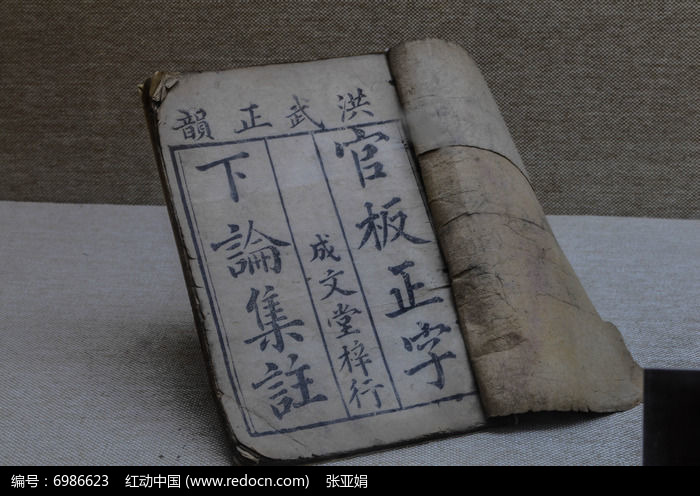 洪武正韻
官板正字
成文堂梓行
下論集註
编号：6986623 红动中国 (www.redocn.com) 张亚娟